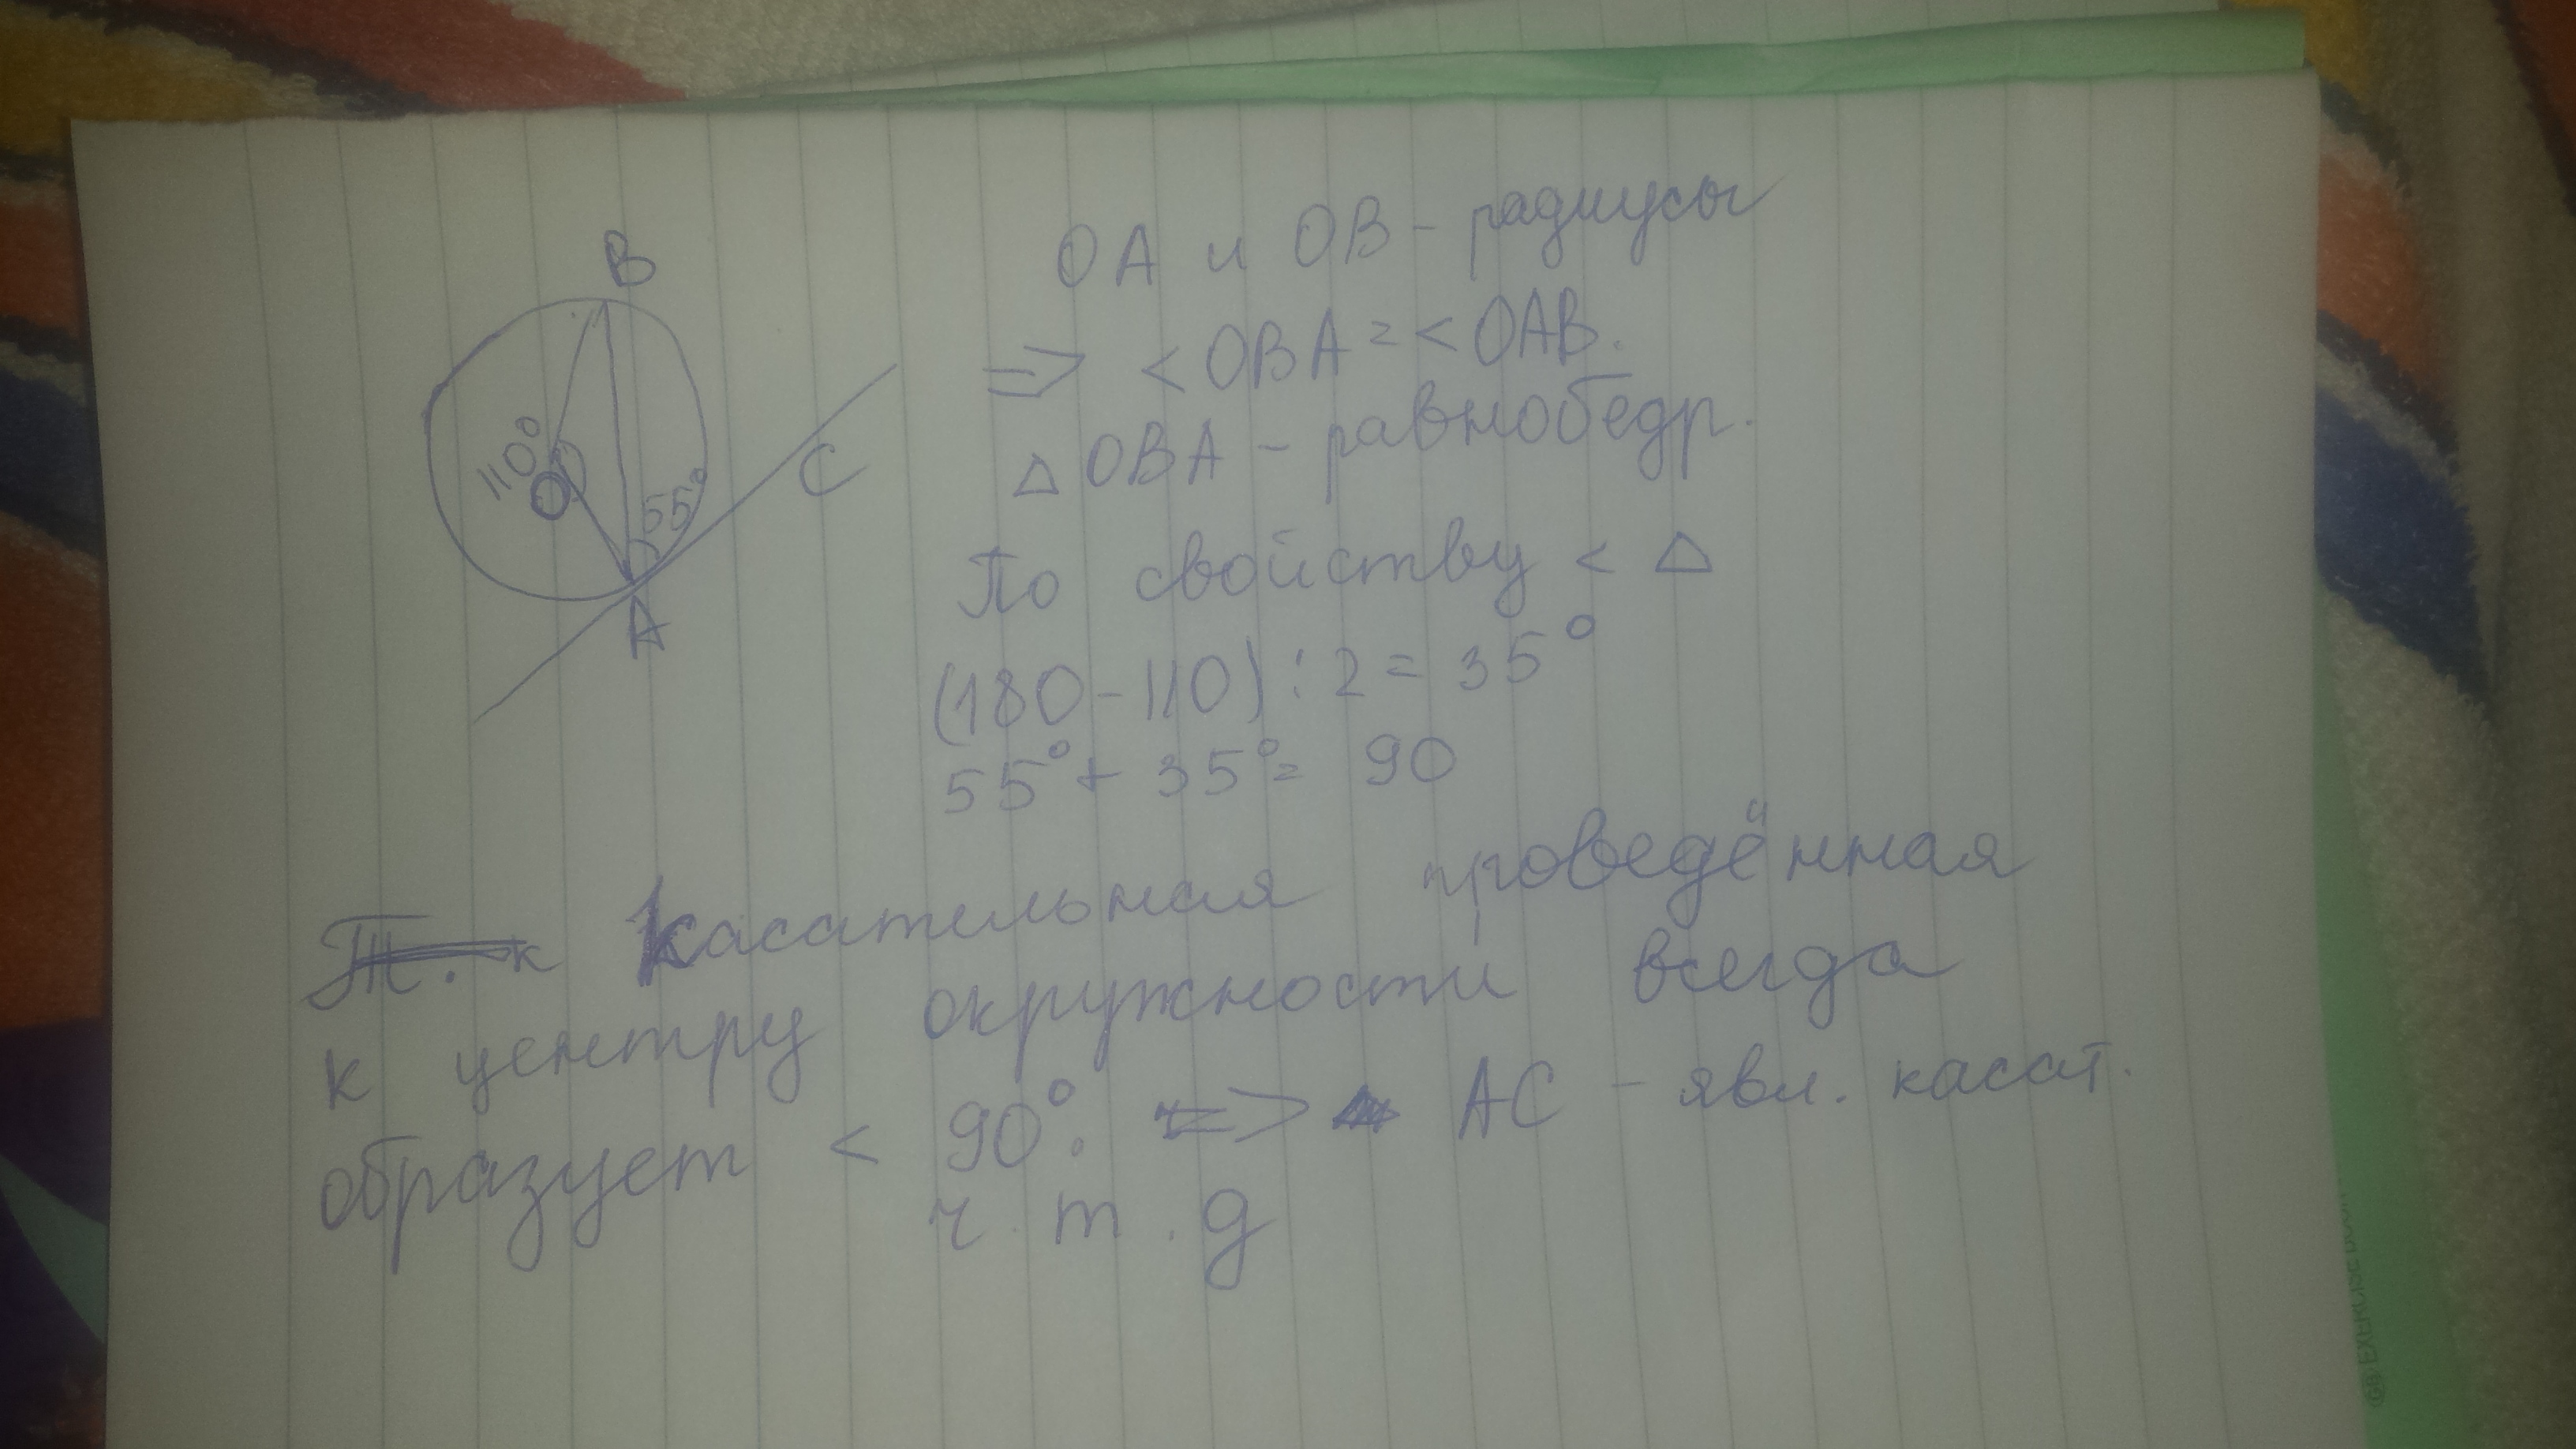 B
110°
O
55°
C
A
OA и OB - радиусы
=> < OBA = < OAB.
△ OBA - равнобедр.
По свойству < △
(180-110) : 2 = 35°
55° + 35° = 90
Т.к Касательная проведённая
к центру окружности всегда
образует < 90°. => AC - явл. касат.
ч. т. д